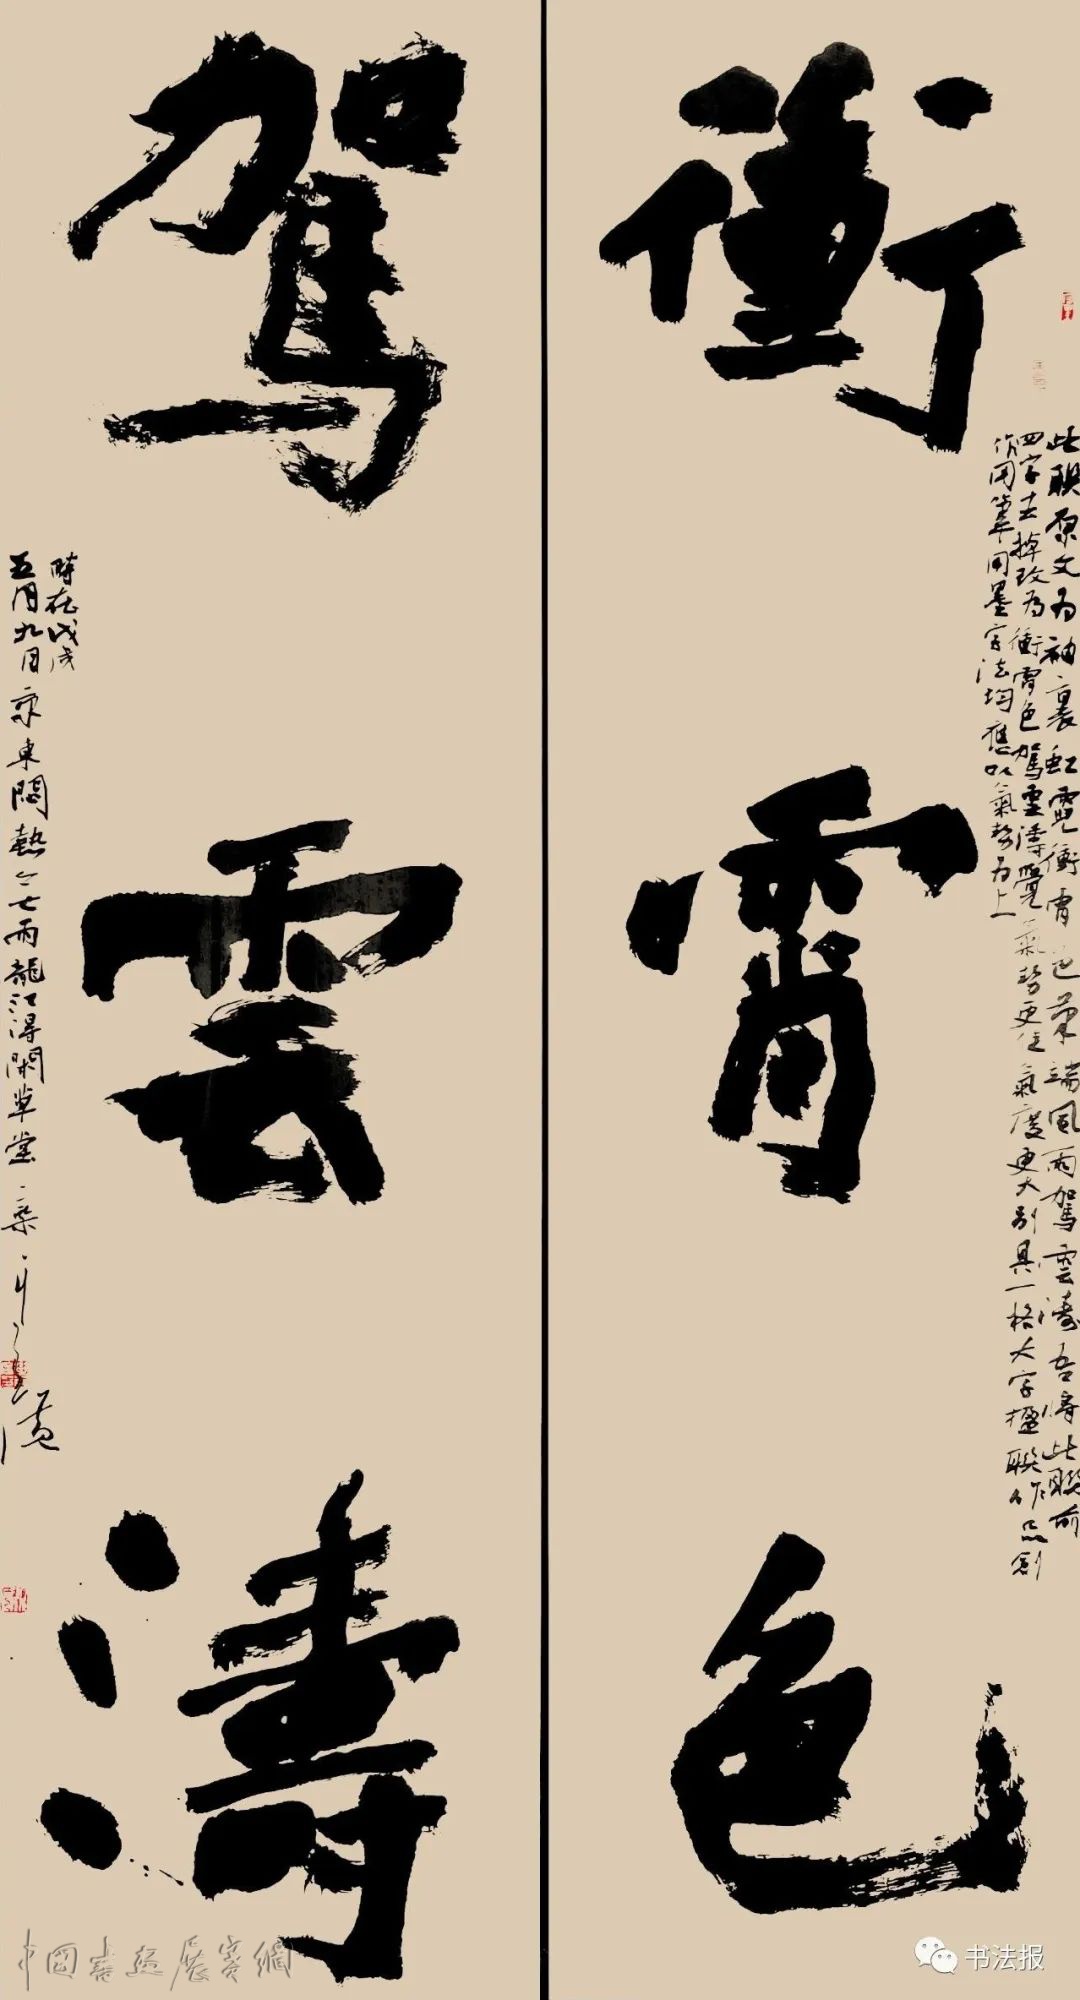 衝霄色
駕雲濤
此联原文為袖裏虹霓衝霄色筆端風雨駕雲濤吾將此聯前
四字去掉改為衝霄色駕雲濤覺氣勢更佳氣度更大別具一格大字楹聯作品創
作用筆用墨字法均應以氣勢為上
時在戊戌
五月九日京東悶熱
雨龍江得閑草堂
中國書畫展賽網
书法报